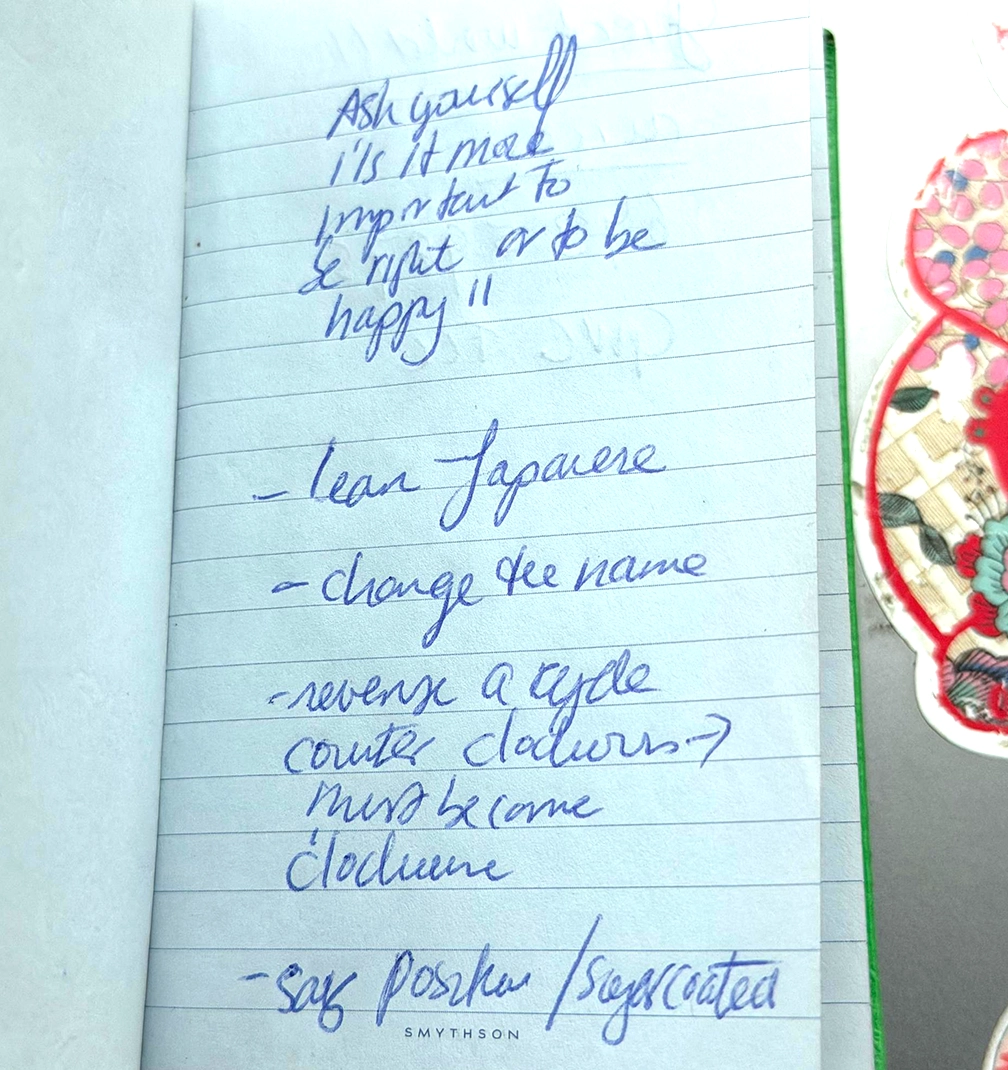 Ask yourself
i'Is it more
important to
be right or to be
happy !!
- lean Japanese
- change the name
- reverse a cycle
counter clockwise →
must become
clockwise
- say / sugarcoated
SMYTHSON